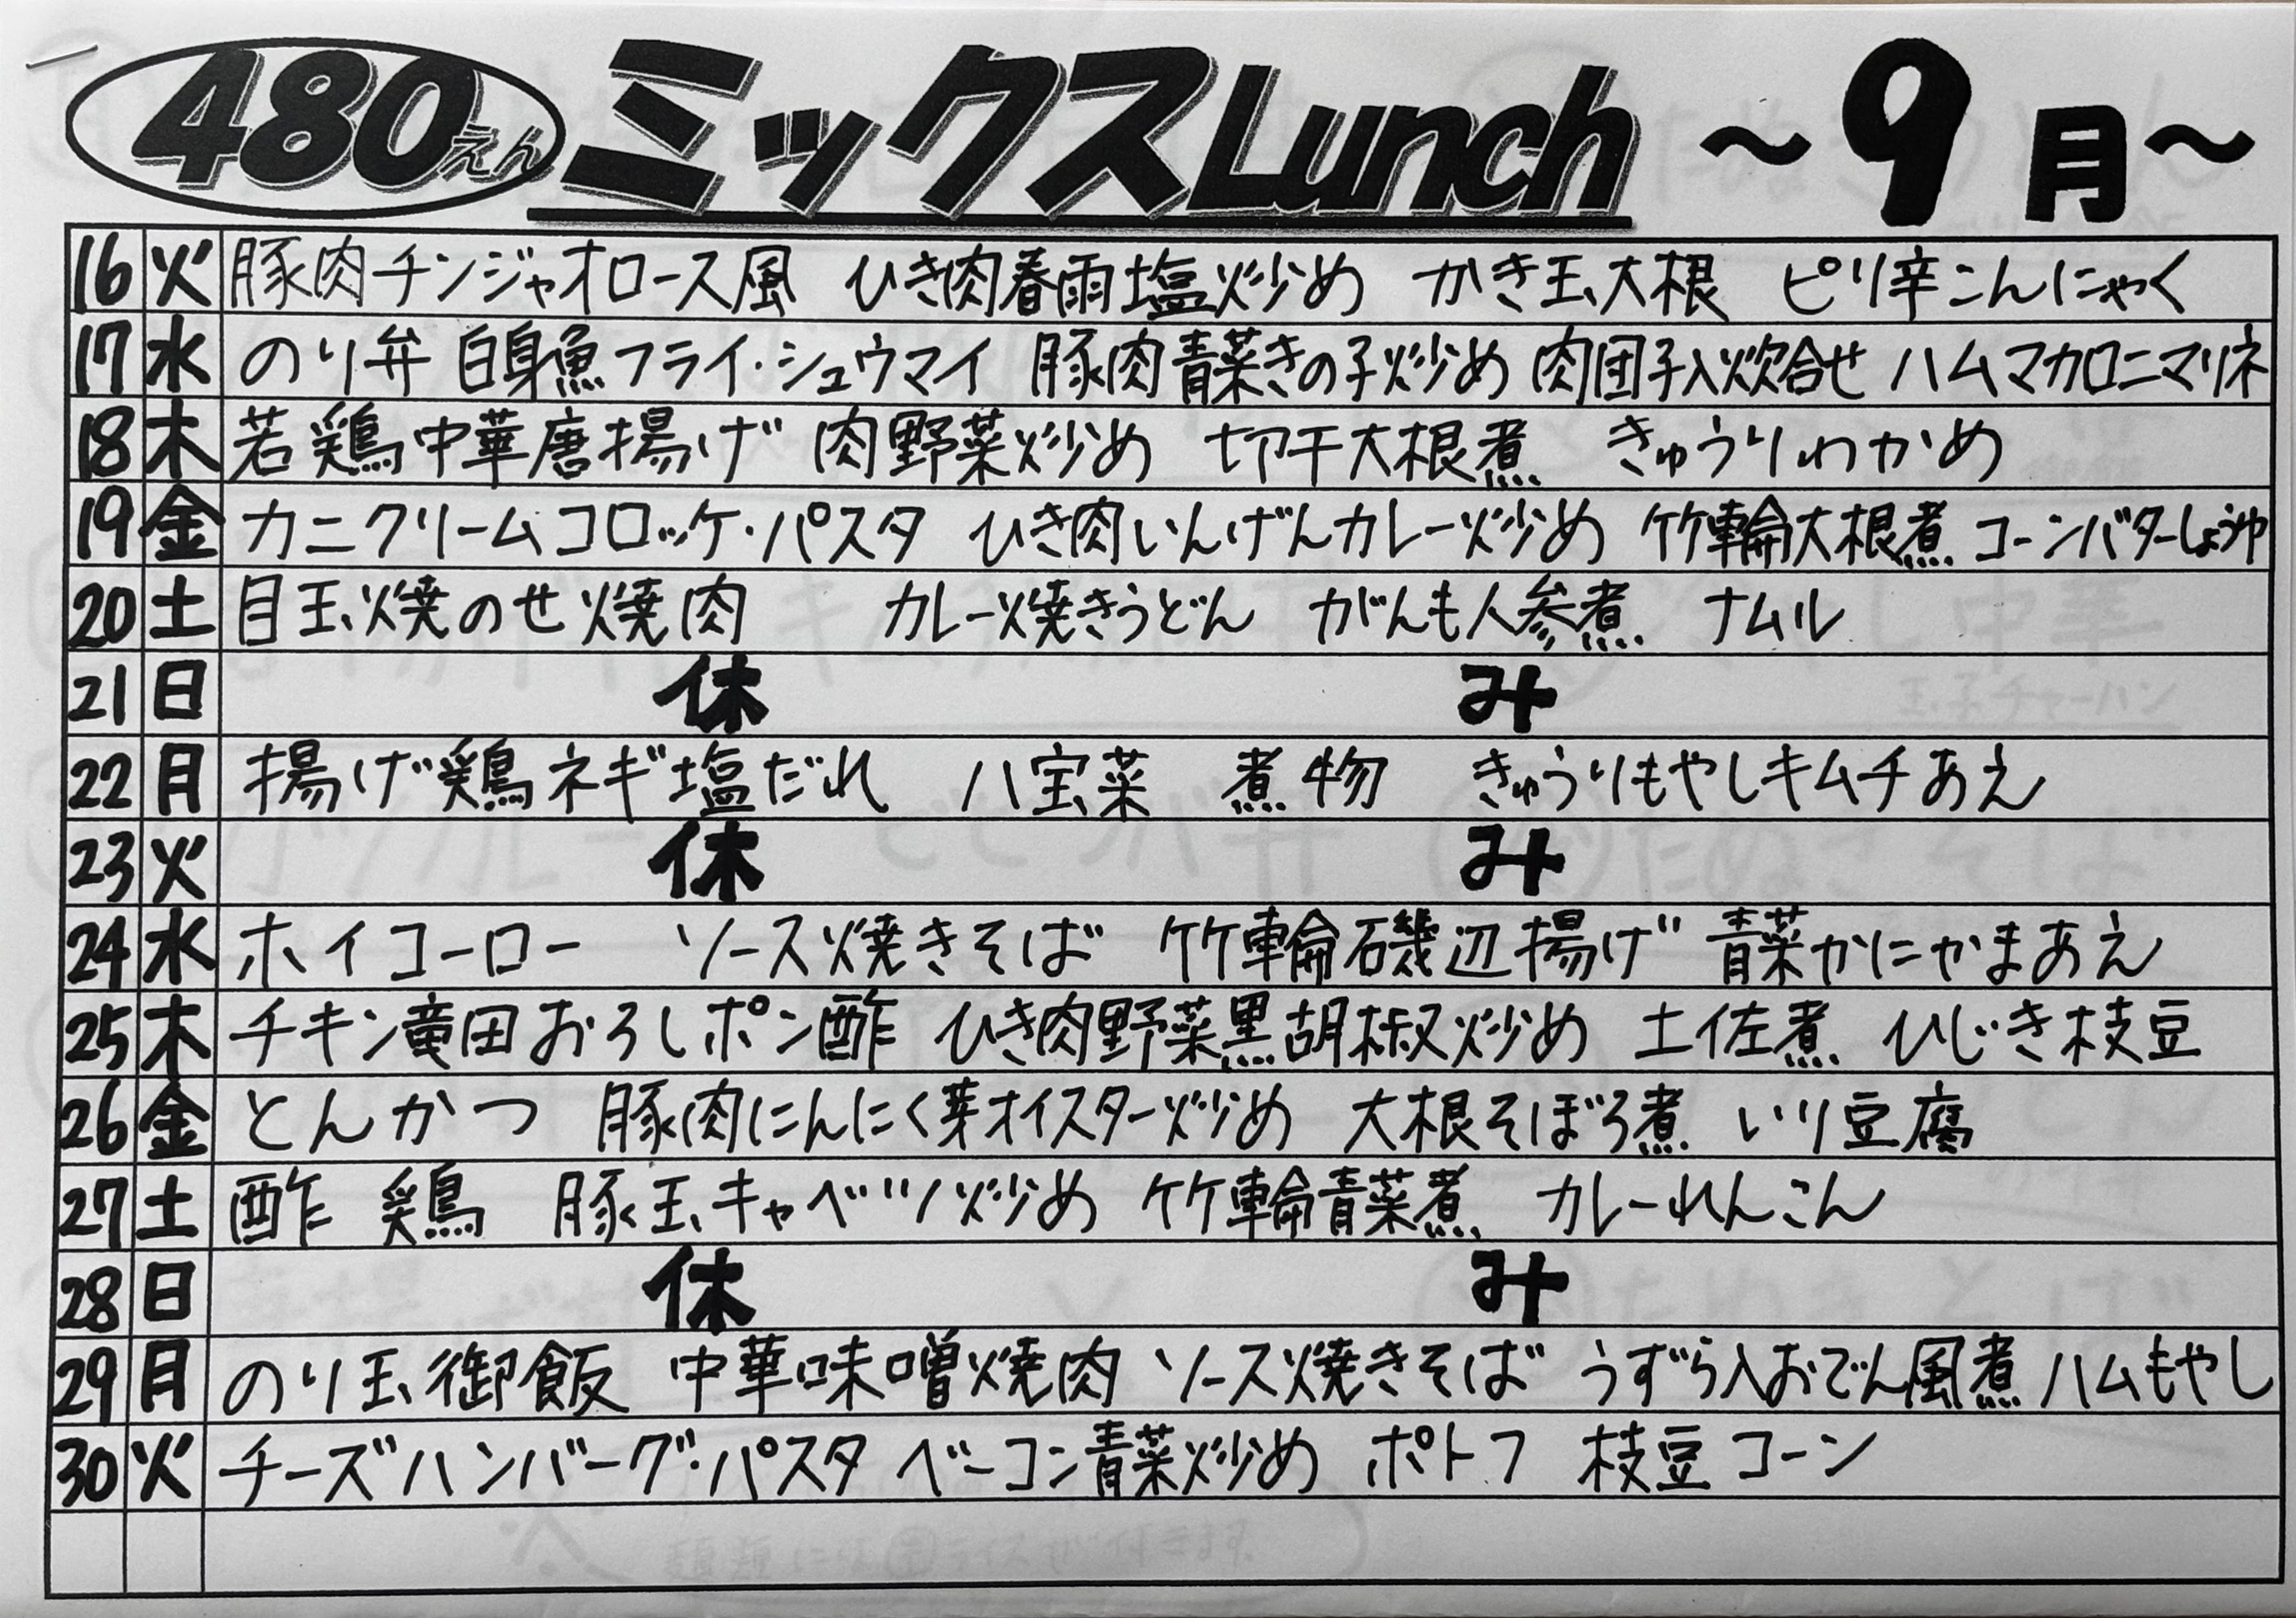 480えん ミックスLunch ～9月～
16 火 豚肉チンジャオロース風 ひき肉春雨塩炒め かき玉大根 ピリ辛こんにゃく
17 水 のり弁 白身魚フライ・シュウマイ 豚肉青菜きの子炒め 肉団子入炊合せ ハムマカロニマリネ
18 木 若鶏中華唐揚げ 肉野菜炒め 切干大根煮 きゅうりわかめ
19 金 カニクリームコロッケ・パスタ ひき肉いんげんカレー炒め 竹輪大根煮 コーンバターしょうゆ
20 土 目玉焼のせ焼肉 カレー焼きうどん がんも人参煮 ナムル
21 日 休み
22 月 揚げ鶏ネギ塩だれ 八宝菜 煮物 きゅうりもやしキムチあえ
23 火 休み
24 水 ホイコーロー ソース焼きそば 竹輪磯辺揚げ 青菜かにかまあえ
25 木 チキン竜田おろしポン酢 ひき肉野菜黒胡椒炒め 土佐煮 ひじき枝豆
26 金 とんかつ 豚肉にんにく芽オイスター炒め 大根そぼろ煮 いり豆腐
27 土 酢鶏 豚玉キャベツ炒め 竹輪青菜煮 カレーれんこん
28 日 休み
29 月 のり玉御飯 中華味噌焼肉 ソース焼きそば うずら入おでん風煮 ハムもやし
30 火 チーズハンバーグ・パスタ ベーコン青菜炒め ポトフ 枝豆コーン